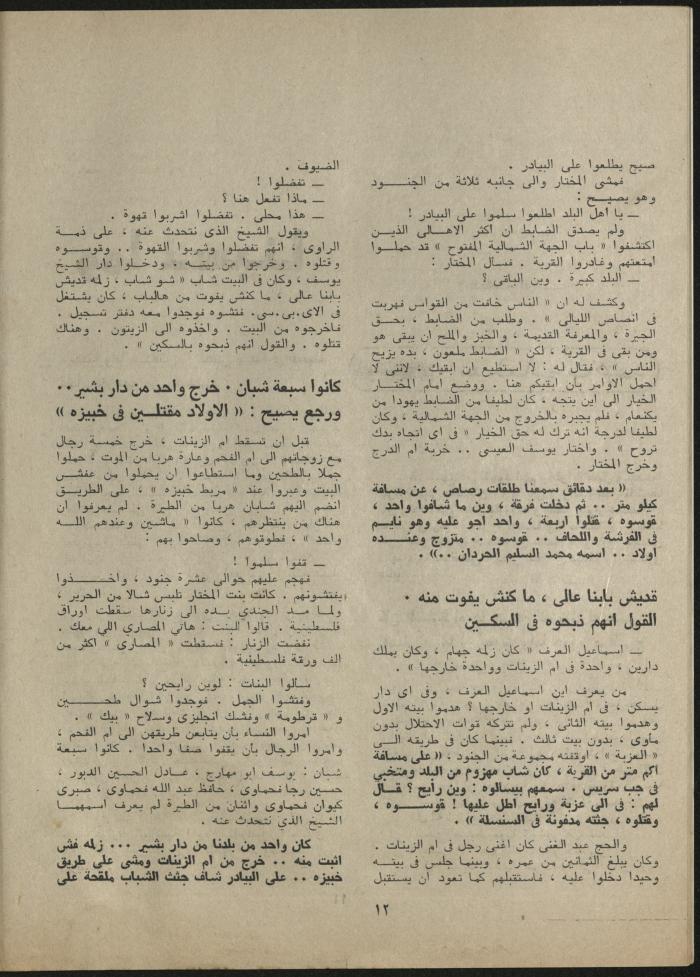 صبح يطلعوا على البيادر .
فمشى المختار والى جانبه ثلاثة من الجنـــود
وهو يصيـــح :
ـــ يا اهل البلد اطلعوا سلموا على البيادر !
ولم يصدق الضابط ان اكثر الاهــالى الذيــن
اكتشفوا « باب الجهة الشمالية المفتوح » قد حملــوا
امتعتهم وغادروا القرية . فسأل المختار :
ـــ البلد كبيرة . وين الباقى ؟
وكشف له ان « الناس خافت من القواس فهربت
فى انصاص الليالى » . وطلب من الضابط ، بحــق
الجيرة ، والمعرفة القديمة ، والخبز والملح ان يبقى هو
ومن بقى فى القرية ، لكن « الضابط ملعون ، بده يزيح
الناس » ، فقال له : لا استطيع ان ابقيك ، لاننى لا
احمل الاوامر بأن ابقيكم هنا . ووضع امام المختــار
الخيار الى اين يتجه ، كان لطيفا من الضابط يهودا من
يكنعام ، فلم يجبره بالخروج من الجهة الشمالية ، وكان
لطيفا لدرجة انه ترك له حق الخيار « فى اى اتجاه بدك
تروح » . واختار يوسف العيسى .. خربة ام الدرج
وخرج المختار .
« بعد دقائق سمعنا طلقات رصاص ، عن مسافة
كيلو متر .. ثم دخلت فرقة ، وين ما شافوا واحد ،
قوسوه ، قتلوا اربعة ، واحد اجو عليه وهو نايــم
فى الفرشة واللحاف .. قوسوه .. متزوج وعنــده
اولاد .. اسمه محمد السليم الحردان ..» .
قديش بابنا عالى ، ما كنش يفوت منه .
القول انهم ذبحوه فى السكــين
ـــ اسماعيل العرف « كان زلمه جهام ، وكان يملك
دارين ، واحدة فى ام الزينات وواحدة خارجها » .
من يعرف اين اسماعيل العرف ، وفى اى دار
يسكن ، فى ام الزينات او خارجها ؟ هدموا بيته الاول
وهدموا بيته الثانى ، ولم تتركه قوات الاحتلال بدون
مأوى ، بدون بيت ثالث . فبينما كان فى طريقه الــى
« العزبة » ، اوقفته مجموعة من الجنود ، « على مسافة
اكم متر من القرية ، كان شاب مهزوم من البلد ومتخبي
فى جب سريس . سمعهم بيسألوه : وين رايح ؟ قــال
لهم : فى الى عزبة ورايح اطل عليها ! قوســـوه ،
وقتلوه ، جثته مدفونة فى السنسلة » .
والحج عبد الغنى كان اغنى رجل فى ام الزينات .
وكان يبلغ الثمانين من عمره ، وبينما جلس فى بيتــه
وحيدا دخلوا عليه ، فاستقبلهم كما تعود ان يستقبل
الضيوف .
ـــ تفضلوا !
ـــ ماذا تفعل هنا ؟
ـــ هذا محلى . تفضلوا اشربوا قهوة .
ويقول الشيخ الذى نتحدث عنه ، على ذمــة
الراوى ، انهم تفضلوا وشربوا القهوة .. وقوســوه
وقتلوه . وخرجوا من بيتــه ، ودخلــوا دار الشيخ
يوسف ، وكان فى البيت شاب « شو شاب ، زلمه قديش
بابنا عالى ، ما كنش يفوت من هالباب ، كان يشتغل
فى الاى.بى.سى. فتشوه فوجدوا معه دفتر تسجيل .
فاخرجوه من البيت . واخذوه الى الزيتون . وهناك
قتلوه . والقول انهم ذبحوه بالسكين » .
كانوا سبعة شبان . خرج واحد من دار بشير ..
ورجع يصيح : « الاولاد مقتلــين فى خبيزه »
قبل ان تسقط ام الزينات ، خرج خمسة رجال
مع زوجاتهم الى ام الفحم وعارة هربا من الموت ، حملوا
جملا بالطحين وما استطاعوا ان يحملوا من عفش
البيت وعبروا عند « مربط خبيزه » ، على الطريــق
انضم اليهم شابان هربا من الطيرة . لم يعرفوا ان
هناك من ينتظرهم ، كانوا « ماشين وعندهم اللــه
واحد » ، فطوقوهم ، وصاحوا بهم :
ـــ قفوا سلموا !
فهجم عليهم حوالى عشرة جنود ، واخــــذوا
يفتشونهم . كانت بنت المختار تلبس شالا من الحرير ،
ولما مــد الجندي يــده الى زنارها سقطت اوراق
فلسطينية . قالوا للبنت : هاتي المصاري اللي معك .
نفضت الزنار : فسقطت « المصارى » اكثر من
الف ورقة فلسطينية .
سألوا البنات : لوين رايحين ؟
وفتشوا الجمل . فوجدوا شوال طحــــين
و « قرطومة » وفشك انجليزى وسلاح « بيك » .
امروا النساء بأن يتابعن طريقهن الى ام الفحم ،
وامروا الرجال بأن يقفوا صفا واحدا . كانوا سبعة
شبان : يوسف ابو مهارج ، عــادل الحسين الدبور ،
حسين رجا فحماوى ، حافظ عبد الله فحماوى ، صبرى
كيوان فحماوى واثنان من الطيرة لم يعرف اسمهمــا
الشيخ الذى نتحدث عنه .
كان واحد من بلدنا من دار بشير ... زلمه فش
اثبت منه .. خرج من ام الزينات ومشى على طريق
خبيزه .. على البيادر شاف جثث الشباب ملقحة على
١٢